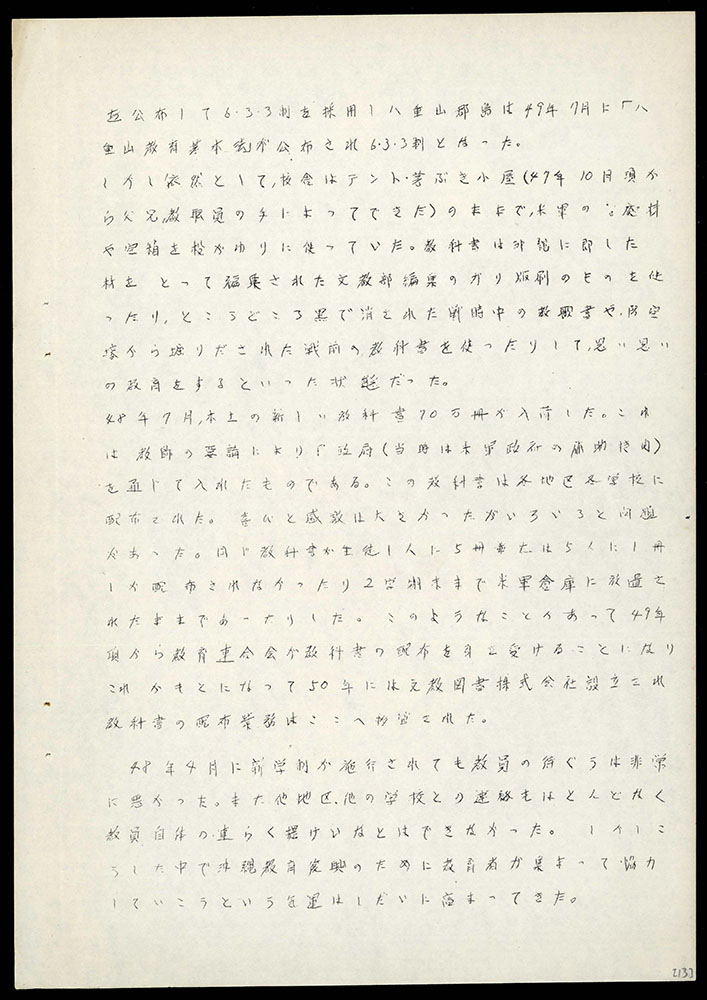 を公布して6・3・3制を採用し八重山郡島は49年7月に「八
重山教育基本法」が公布され6・3・3制となった。
しかし依然として,校舎はテント・茅ぶき小屋(47年10月頃か
ら父兄,教職員の手によってできた)のままで,米軍の 廃材
や空箱を机がわりに使っていた。教科書は沖縄に即した
材を とって編集された文教部編集のガリ版刷のものを使
ったり,ところどころ黒で消された戦時中の教科書や,防空
壕から堀りだされた戦前の教科書を使ったりして,思い思い
の教育をするといった状態だった。
48年7月,本土の新しい教科書70万冊が入荷した。これ
は教師の要請により「政府(当時は米軍政府の補助機関)
を通じて入れたものである。この教科書は各地区各学校に
配布された。喜びと感激は大きかったがいろいろと問題
があった。同じ教科書が生徒1人に5冊または5人に1冊
しか配布されなかったり2学期末まで米軍倉庫に放置さ
れたままであったりした。このようなことがあって49年
頃から教育連合会が教科書の配布を引き受けることになり
これがもとになって50年には文教図書株式会社設立され
教科書の配布業務はここへ移管された。
48年4月に新学制が施行されても教員の待ぐうは非常
に悪かった。また他地区,他の学校との連絡もほとんどなく
教員自体の 連らく提けいなどはできなかった。 しかしこ
うした中で沖縄教育復興のために教育者が集まって協力
していこうという気運はしだいに高まってきた。
[13]